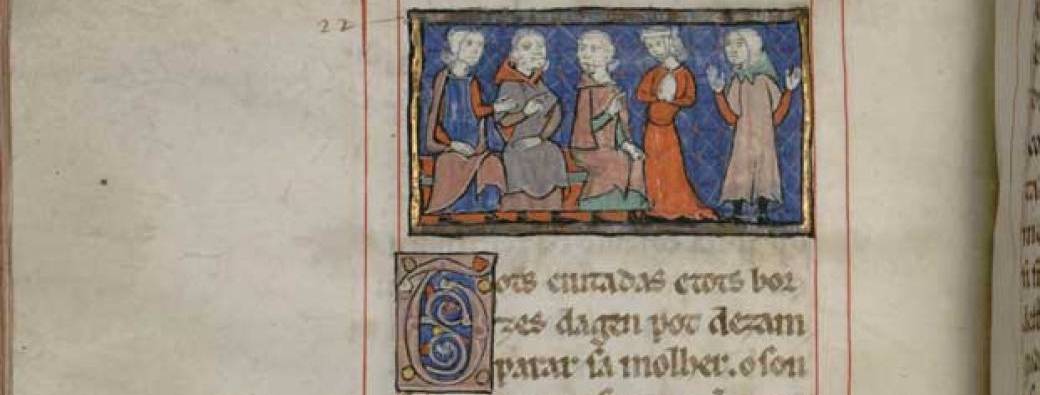 22
Tots ciutadas e tots bor
zes dagen pot dezam
parar sa molher. o son